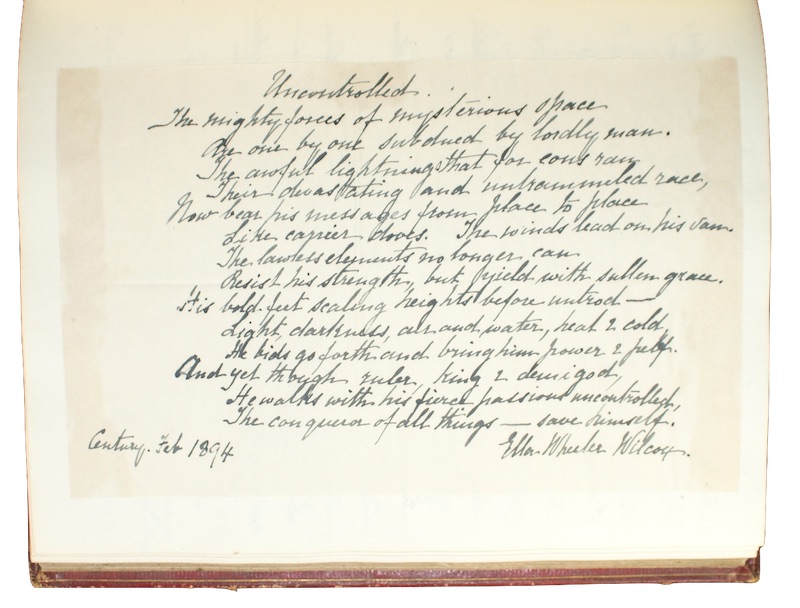 Uncontrolled.
The mighty forces of mysterious space
Are one by one subdued by lordly man.
The awful lightnings that for eons ran
Their devastating and untrammeled race,
Now bear his messages from place to place
Like carrier doves. The winds lead on his van.
The lawless elements no longer can
Resist his strength, but yield with sullen grace.
His bold feet scaling heights before untrod —
Light, darkness, air and water, heat & cold,
He bids go forth and bring him power & pelf.
And yet though ruler, king & demigod,
He walks with his fierce passions uncontrolled,
The conqueror of all things — save himself.
Century. Feb 1894
Ella Wheeler Wilcox.